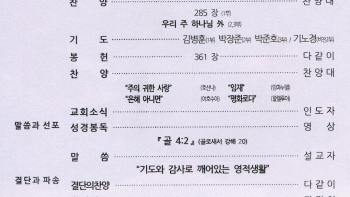 찬 양 찬 양 대
285 장 (1부)
우리 주 하나님 외 (2,3부)
기 도 김병훈(1부) 박장준(2부) 박준호(3부) / 기노경
봉 헌 361 장 다 같 이
찬 양 찬 양 대
"주의 귀한 사랑" (호산나) "임재" (임마누엘)
"은혜 아니면" (여호수아) "평화로다" (할렐루야)
교회소식 인 도 자
말씀과 선포 성경봉독 영 상
『골 4:2』 (골로새서 강해 20)
말 씀 설 교 자
"기도와 감사로 깨어있는 영적생활"
결단과 파송 결단의찬양 다 같 이